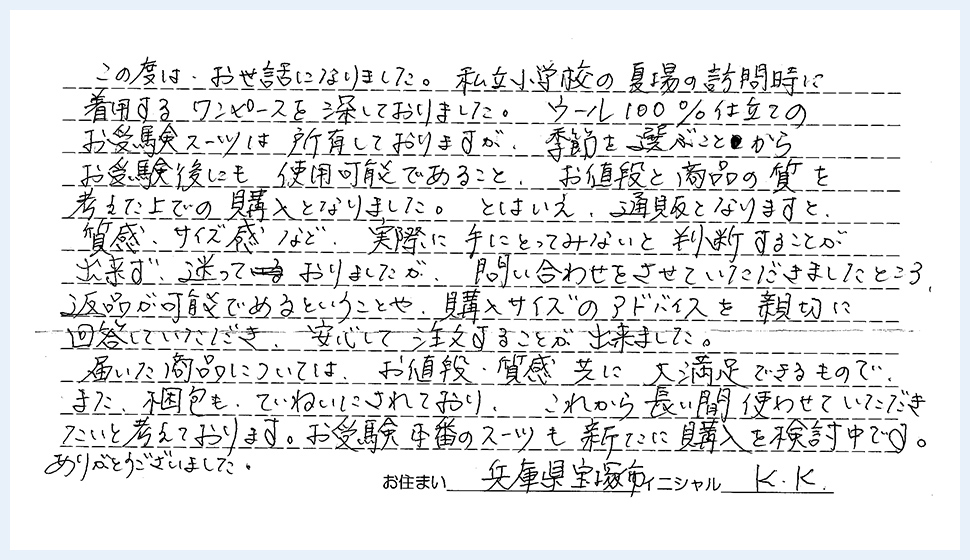 この度は、お世話になりました。 私立小学校の夏場の訪問時に
着用するワンピースを探しておりました。 ウール100%仕立ての
お受験スーツは所有しておりますが、季節を選ぶことから
お受験後にも使用可能であること、お値段と商品の質を
考えた上での購入となりました。 とはいえ、通販となりますと、
質感、サイズ感など、実際に手にとってみないと判断することが
出来ず、迷っておりましたが、問い合わせをさせていただきましたところ、
返品が可能であるということや、購入サイズのアドバイスを親切に
回答していただき、安心して注文することが出来ました。
届いた商品については、お値段・質感共に大満足できるもので、
また、梱包も、ていねいにされており、これから長い間使わせていただき
たいと考えております。お受験本番のスーツも新たに購入を検討中です。
ありがとうございました。
お住まい 兵庫県宝塚市 イニシャル K.K.